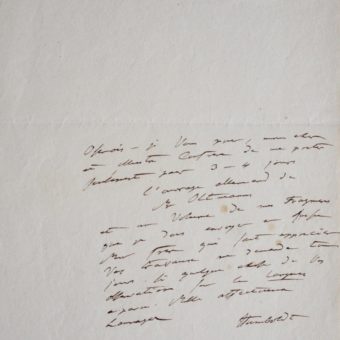 Oserois-je Vous prier, mon cher
et illustre Confrère de me prêter
seulement pour 3-4 jours
l'ouvrage allemand de
Mr Oltmanns
et un Volume de nos Fragmens
que je dois envoyer en
Mon frère qui sait apprécier
Vos travaux me demande tou
jours si quelque chose de Vos
observations sur le
a paru. Mille affectueux
hommages
Humboldt